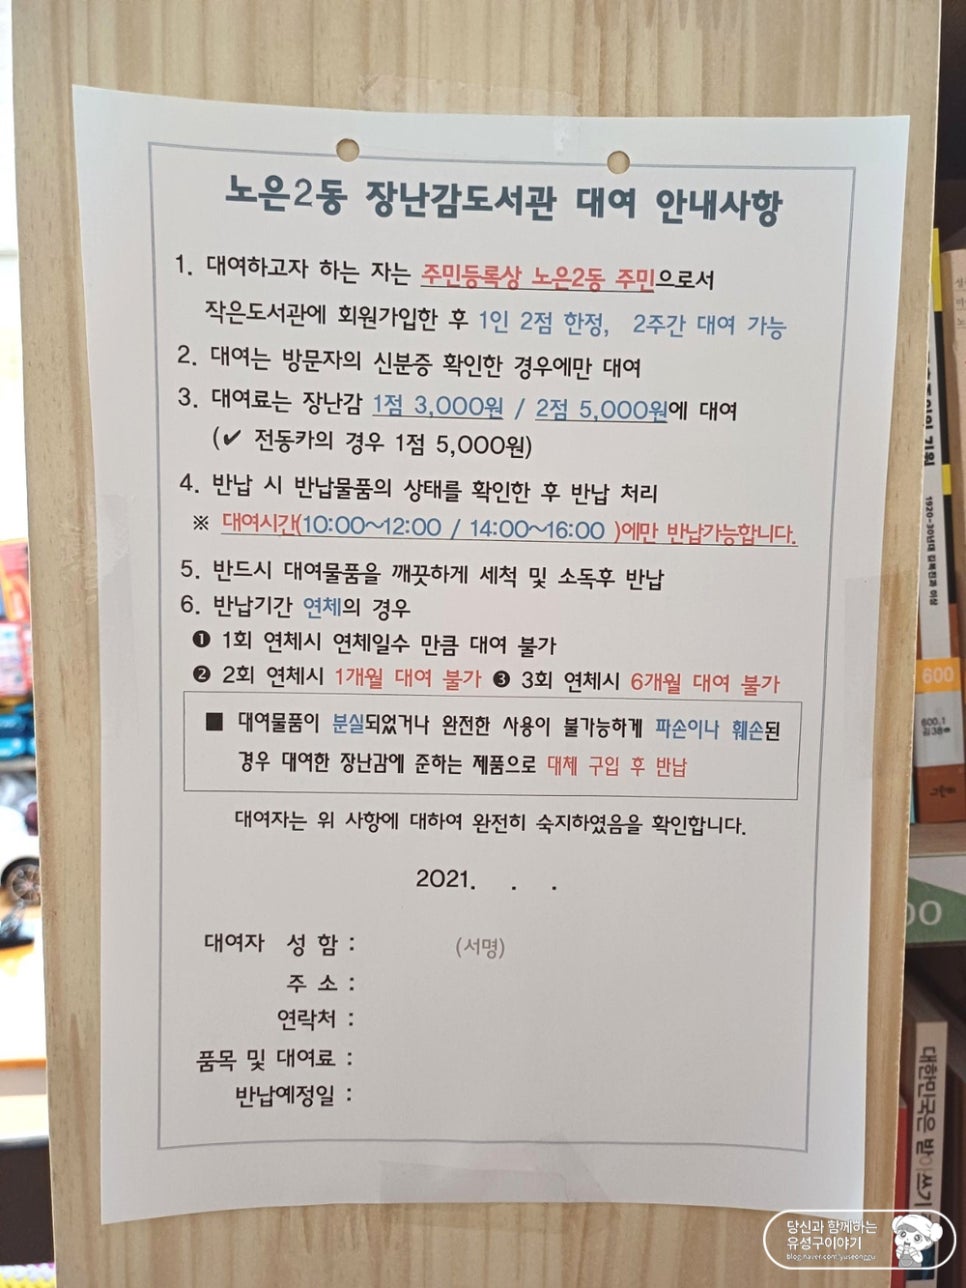 노은2동 장난감도서관 대여 안내사항
1. 대여하고자 하는 자는 주민등록상 노은2동 주민으로서
작은도서관에 회원가입한 후 1인 2점 한정, 2주간 대여 가능
2. 대여는 방문자의 신분증 확인한 경우에만 대여
3. 대여료는 장난감 1점 3,000원 / 2점 5,000원에 대여
(✔ 전동카의 경우 1점 5,000원)
4. 반납 시 반납물품의 상태를 확인한 후 반납 처리
※ 대여시간(10:00~12:00 / 14:00~16:00 )에만 반납가능합니다.
5. 반드시 대여물품을 깨끗하게 세척 및 소독후 반납
6. 반납기간 연체의 경우
❶ 1회 연체시 연체일수 만큼 대여 불가
❷ 2회 연체시 1개월 대여 불가 ❸ 3회 연체시 6개월 대여 불가
■ 대여물품이 분실되었거나 완전한 사용이 불가능하게 파손이나 훼손된
경우 대여한 장난감에 준하는 제품으로 대체 구입 후 반납
대여자는 위 사항에 대하여 완전히 숙지하였음을 확인합니다.
2021. . .
대여자 성 함 : (서명)
주 소 :
연락처 :
품목 및 대여료 :
반납예정일 :
1920~30년대 김복진과 이상
600
600.1
대한민국은 받아쓰기
당신과 함께하는
유성구이야기
blog.naver.com/yuseonggu